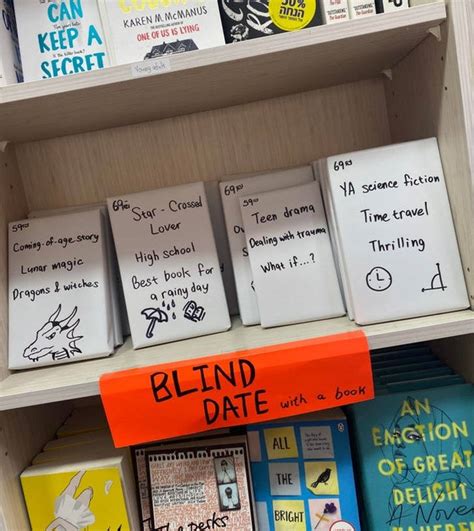 CAN
KEEP A
SECRET
KAREN M. McMANUS
ONE OF US IS LYING
50%
הנחה
Young adult
59₪
Coming-of-age story
Lunar magic
Dragons & witches
69₪
Star-Crossed
Lover
High school
Best book for
a rainy day
69₪
59₪
Teen drama
Dealing with trauma
What if...?
69₪
YA science fiction
Time travel
Thrilling
BLIND
DATE with a book
The perks
ALL
THE
BRIGHT
AN
EMOTION
OF GREAT
DELIGHT
A Novel